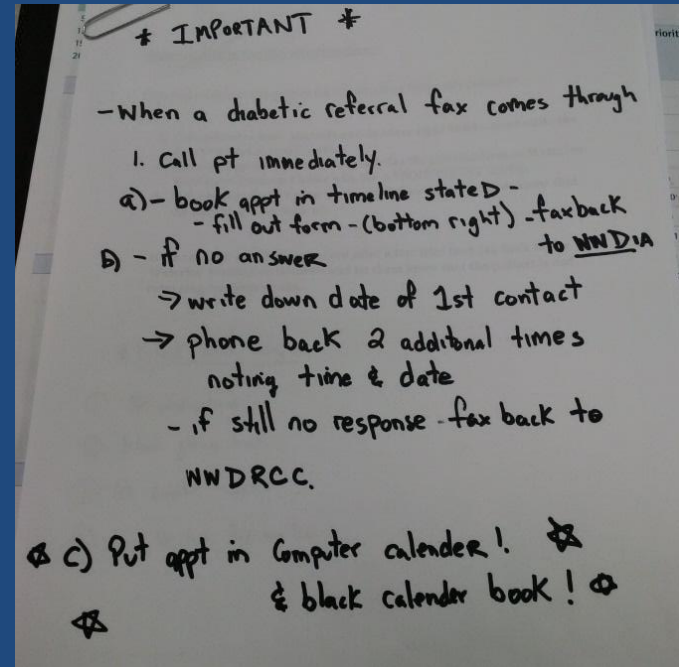 * IMPORTANT *
- When a diabetic referral fax comes through
1. Call pt immediately.
a) - book appt in timeline stateD -
- fill out form - (bottom right) - fax back
to NWDIA
b) - if no answer
→ write down date of 1st contact
→ phone back 2 additonal times
noting time & date
- if still no response - fax back to
NWDRCC.
c) Put appt in Computer calender!
& black calender book!
riorit